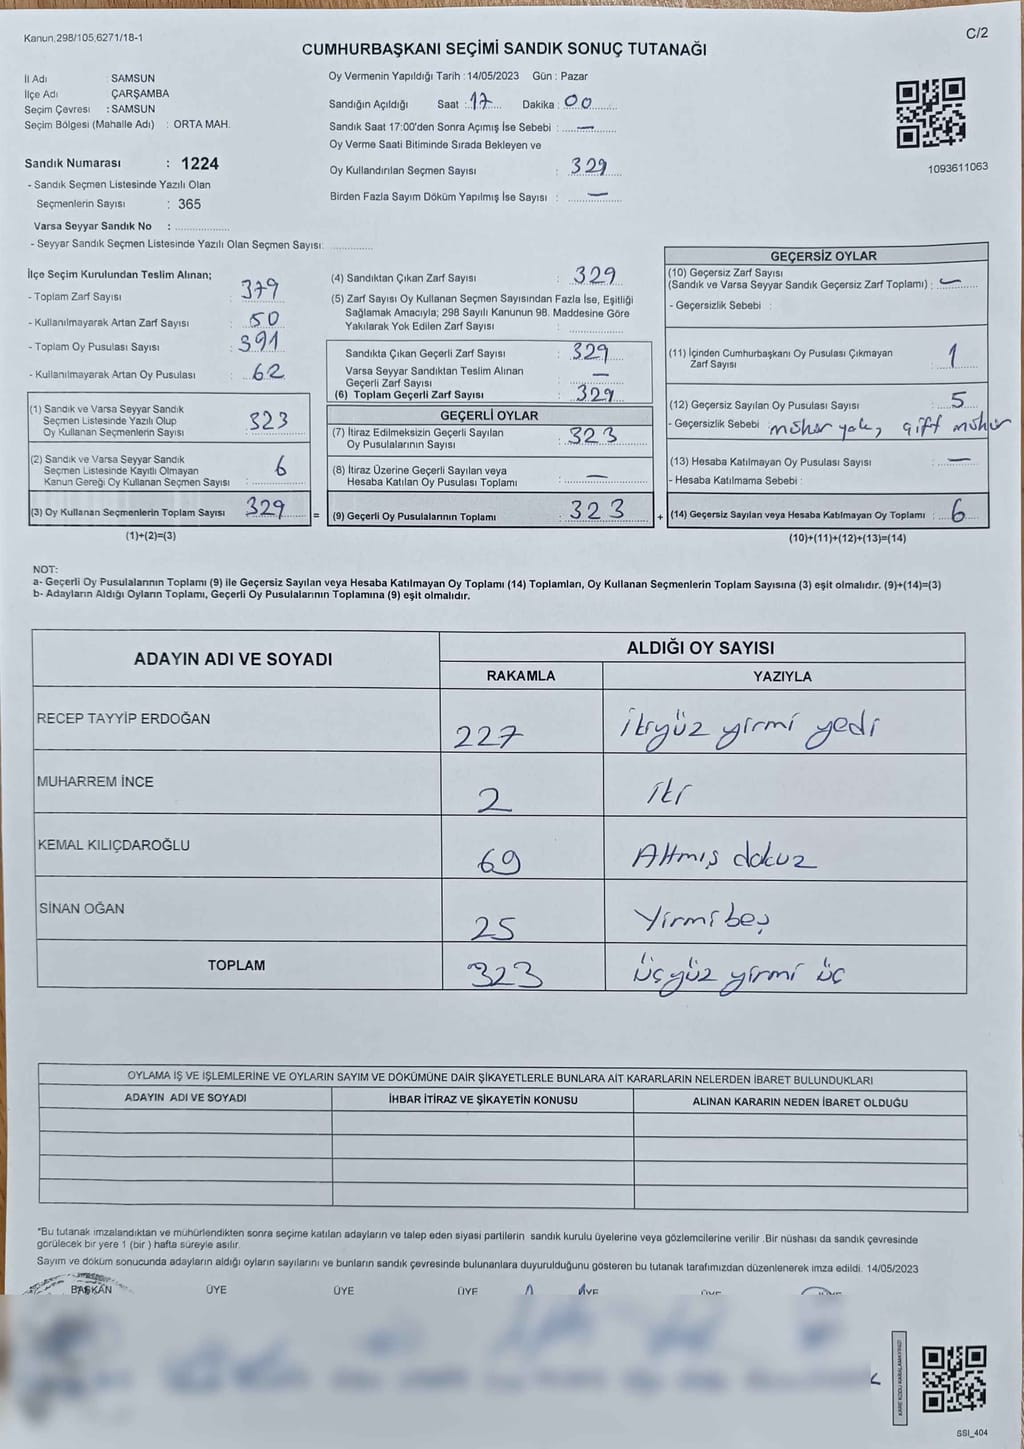 Kanun.298/105,6271/18-1
C/2
CUMHURBAŞKANI SEÇİMİ SANDIK SONUÇ TUTANAĞI
İl Adı : SAMSUN
İlçe Adı : ÇARŞAMBA
Seçim Çevresi : SAMSUN
Seçim Bölgesi (Mahalle Adı) : ORTA MAH.
Sandık Numarası : 1224
- Sandık Seçmen Listesinde Yazılı Olan
Seçmenlerin Sayısı : 365
Varsa Seyyar Sandık No : ....................
- Seyyar Sandık Seçmen Listesinde Yazılı Olan Seçmen Sayısı: ..........
Oy Vermenin Yapıldığı Tarih :14/05/2023 Gün : Pazar
Sandığın Açıldığı Saat : 17 Dakika : 00
Sandık Saat 17:00'den Sonra Açımış İse Sebebi : —
Oy Verme Saati Bitiminde Sırada Bekleyen ve
Oy Kullandırılan Seçmen Sayısı : 329
Birden Fazla Sayım Döküm Yapılmış İse Sayısı : —
1093611063
İlçe Seçim Kurulundan Teslim Alınan;
- Toplam Zarf Sayısı : 379
- Kullanılmayarak Artan Zarf Sayısı : 50
- Toplam Oy Pusulası Sayısı : 391
- Kullanılmayarak Artan Oy Pusulası : 62
(1) Sandık ve Varsa Seyyar Sandık
Seçmen Listesinde Yazılı Olup
Oy Kullanan Seçmenlerin Sayısı : 323
(2) Sandık ve Varsa Seyyar Sandık
Seçmen Listesinde Kayıtlı Olmayan
Kanun Gereği Oy Kullanan Seçmen Sayısı : 6
(3) Oy Kullanan Seçmenlerin Toplam Sayısı : 329 =
(1)+(2)=(3)
(4) Sandıktan Çıkan Zarf Sayısı : 329
(5) Zarf Sayısı Oy Kullanan Seçmen Sayısından Fazla İse, Eşitliği
Sağlamak Amacıyla; 298 Sayılı Kanunun 98. Maddesine Göre
Yakılarak Yok Edilen Zarf Sayısı : ..........
Sandıkta Çıkan Geçerli Zarf Sayısı : 329
Varsa Seyyar Sandıktan Teslim Alınan
Geçerli Zarf Sayısı : —
(6) Toplam Geçerli Zarf Sayısı : 329
GEÇERLİ OYLAR
(7) İtiraz Edilmeksizin Geçerli Sayılan
Oy Pusulalarının Sayısı : 323
(8) İtiraz Üzerine Geçerli Sayılan veya
Hesaba Katılan Oy Pusulası Toplamı : —
(9) Geçerli Oy Pusulalarının Toplamı : 323 +
GEÇERSİZ OYLAR
(10) Geçersiz Zarf Sayısı
(Sandık ve Varsa Seyyar Sandık Geçersiz Zarf Toplamı) : —
- Geçersizlik Sebebi :
(11) İçinden Cumhurbaşkanı Oy Pusulası Çıkmayan
Zarf Sayısı : 1
(12) Geçersiz Sayılan Oy Pusulası Sayısı : 5
- Geçersizlik Sebebi : mühür yok, çift mühür
(13) Hesaba Katılmayan Oy Pusulası Sayısı : —
- Hesaba Katılmama Sebebi :
(14) Geçersiz Sayılan veya Hesaba Katılmayan Oy Toplamı : 6
(10)+(11)+(12)+(13)=(14)
NOT:
a- Geçerli Oy Pusulalarının Toplamı (9) ile Geçersiz Sayılan veya Hesaba Katılmayan Oy Toplamı (14) Toplamları, Oy Kullanan Seçmenlerin Toplam Sayısına (3) eşit olmalıdır. (9)+(14)=(3)
b- Adayların Aldığı Oyların Toplamı, Geçerli Oy Pusulalarının Toplamına (9) eşit olmalıdır.
ADAYIN ADI VE SOYADI
ALDIĞI OY SAYISI
RAKAMLA YAZIYLA
RECEP TAYYİP ERDOĞAN 227 ikiyüz yirmi yedi
MUHARREM İNCE 2 iki
KEMAL KILIÇDAROĞLU 69 Altmış dokuz
SİNAN OĞAN 25 Yirmi beş
TOPLAM 323 üçyüz yirmi üç
OYLAMA İŞ VE İŞLEMLERİNE VE OYLARIN SAYIM VE DÖKÜMÜNE DAİR ŞİKAYETLERLE BUNLARA AİT KARARLARIN NELERDEN İBARET BULUNDUKLARI
ADAYIN ADI VE SOYADI İHBAR İTİRAZ VE ŞİKAYETİN KONUSU ALINAN KARARIN NEDEN İBARET OLDUĞU
*Bu tutanak imzalandıktan ve mühürlendikten sonra seçime katılan adayların ve talep eden siyasi partilerin sandık kurulu üyelerine veya gözlemcilerine verilir .Bir nüshası da sandık çevresinde
görülecek bir yere 1 (bir ) hafta süreyle asılır.
Sayım ve döküm sonucunda adayların aldığı oyların sayılarını ve bunların sandık çevresinde bulunanlara duyurulduğunu gösteren bu tutanak tarafımızdan düzenlenerek imza edildi. 14/05/2023
BAŞKAN ÜYE ÜYE ÜYE ÜYE
KARE KODU KARALAMAYINIZ!
SSI_404